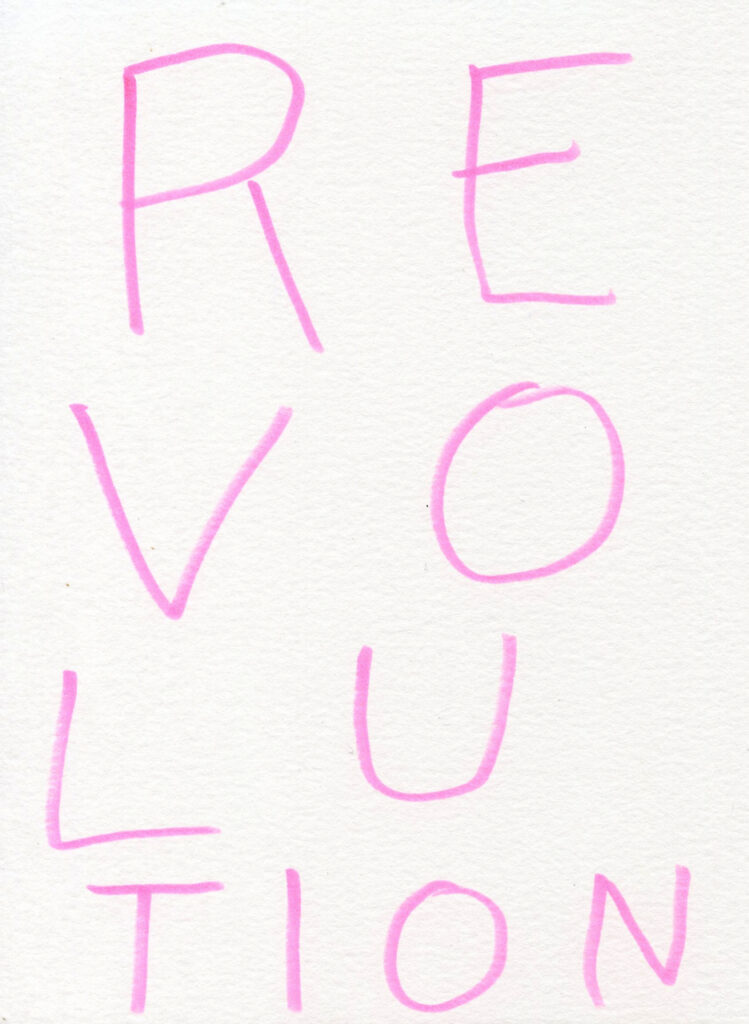 R E
V O
L U
T I O N